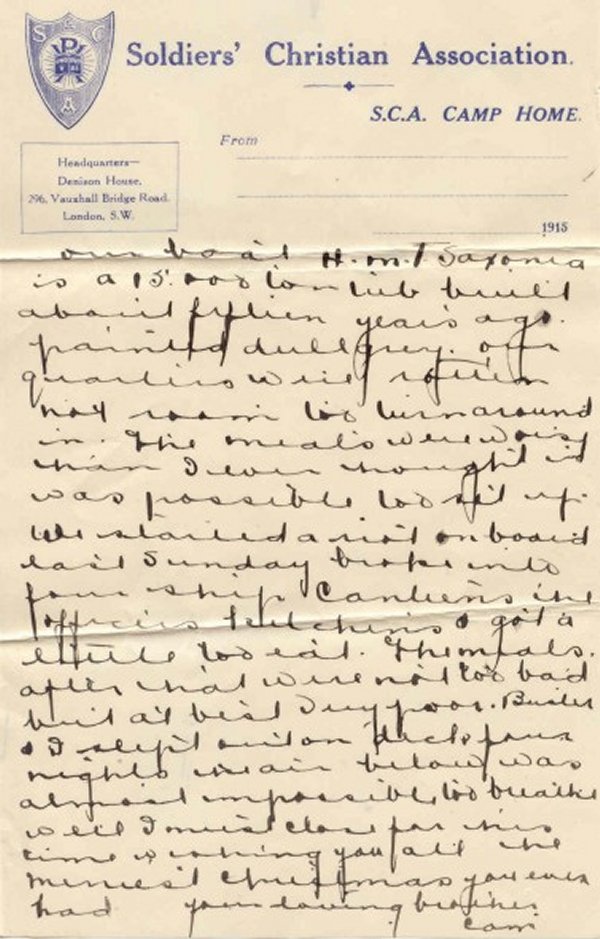 S C A
Soldiers' Christian Association.
S.C.A. CAMP HOME.
From
Headquarters—
Denison House,
296, Vauxhall Bridge Road,
London, S.W.
1915
our boat H.M.T Saxonia
is a 15.000 ton tub built
about fifteen years ago.
painted dull grey. our
quarters were rotten
not room to turn around
in. The meals were worse
than I ever thought it
was possible to sit up.
We started a riot on board
last Sunday broke into
four ship Canteens the
officers kitchens & got a
little to eat. The meals.
after that were not too bad
but at best very poor. Buster
& I slept out on deck four
nights the air below was
almost impossible to breathe
well I must close for this
time wishing you all the
merriest Christmas you ever
had your loving brother
Cam